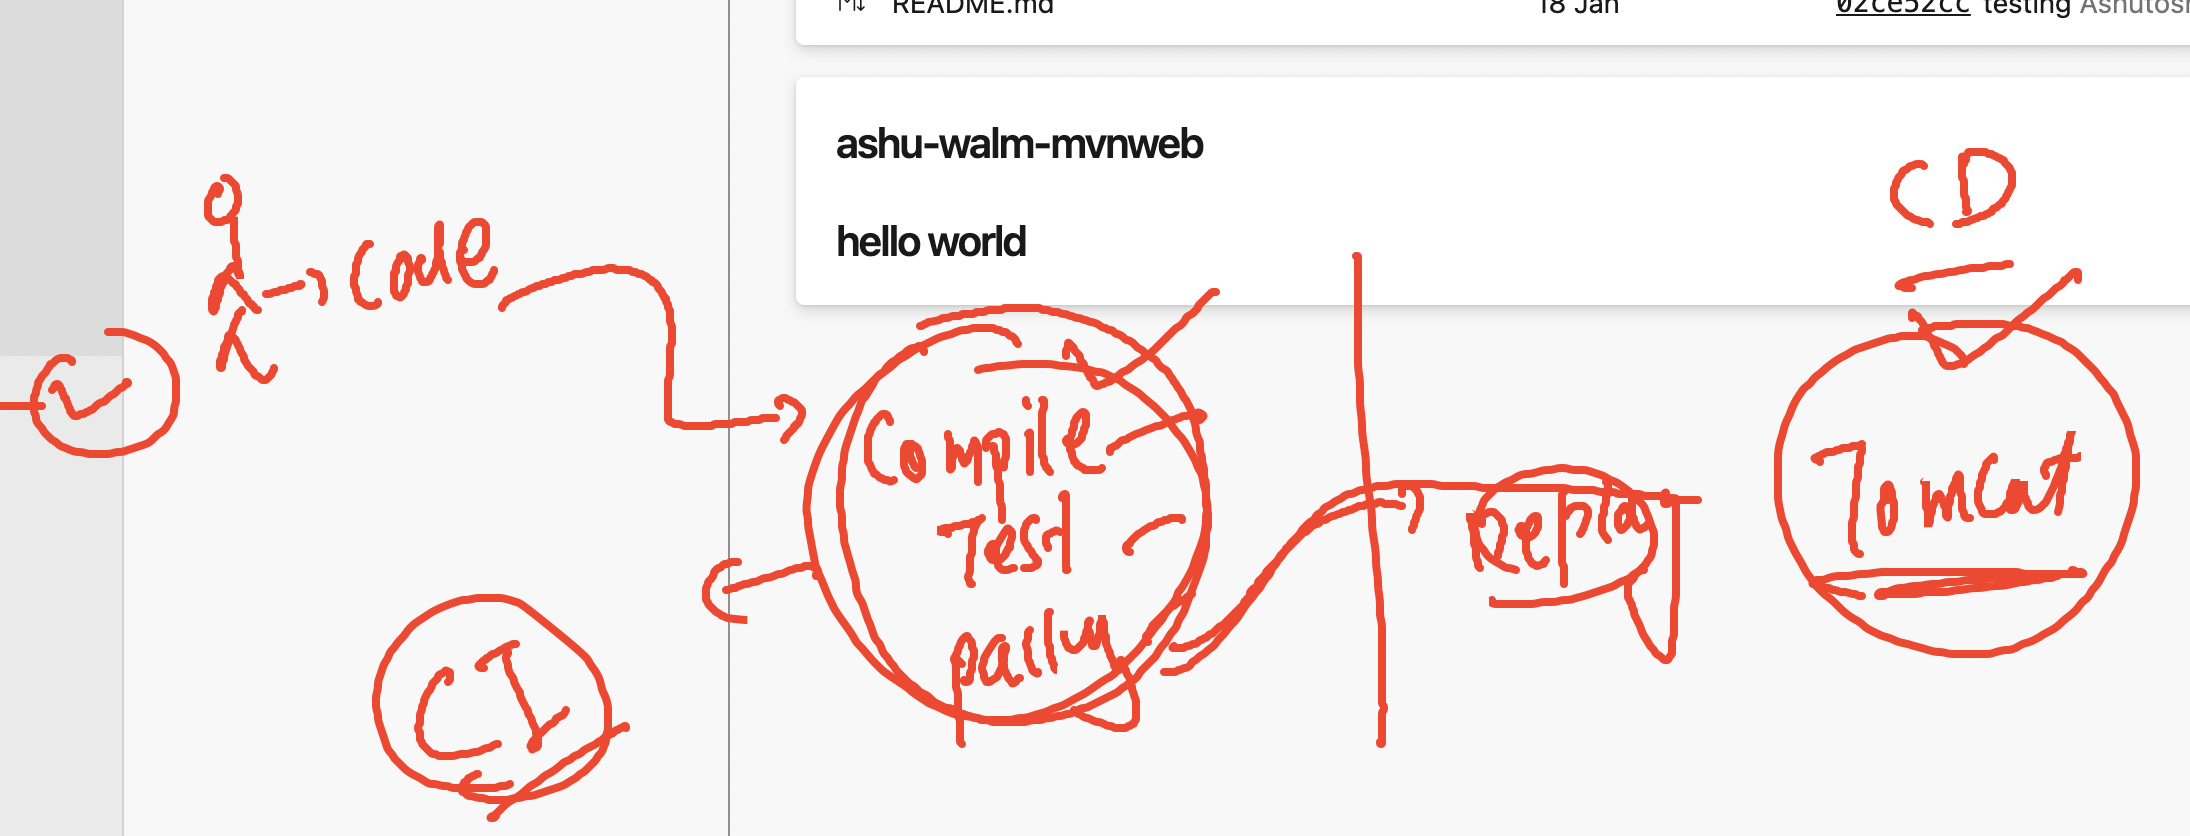 README.md 18 Jan 02ce52cc testing Ashutosh
ashu-walm-mvnweb
hello world
CD
Code
Compile
Test
Deploy
Tomcat
CI